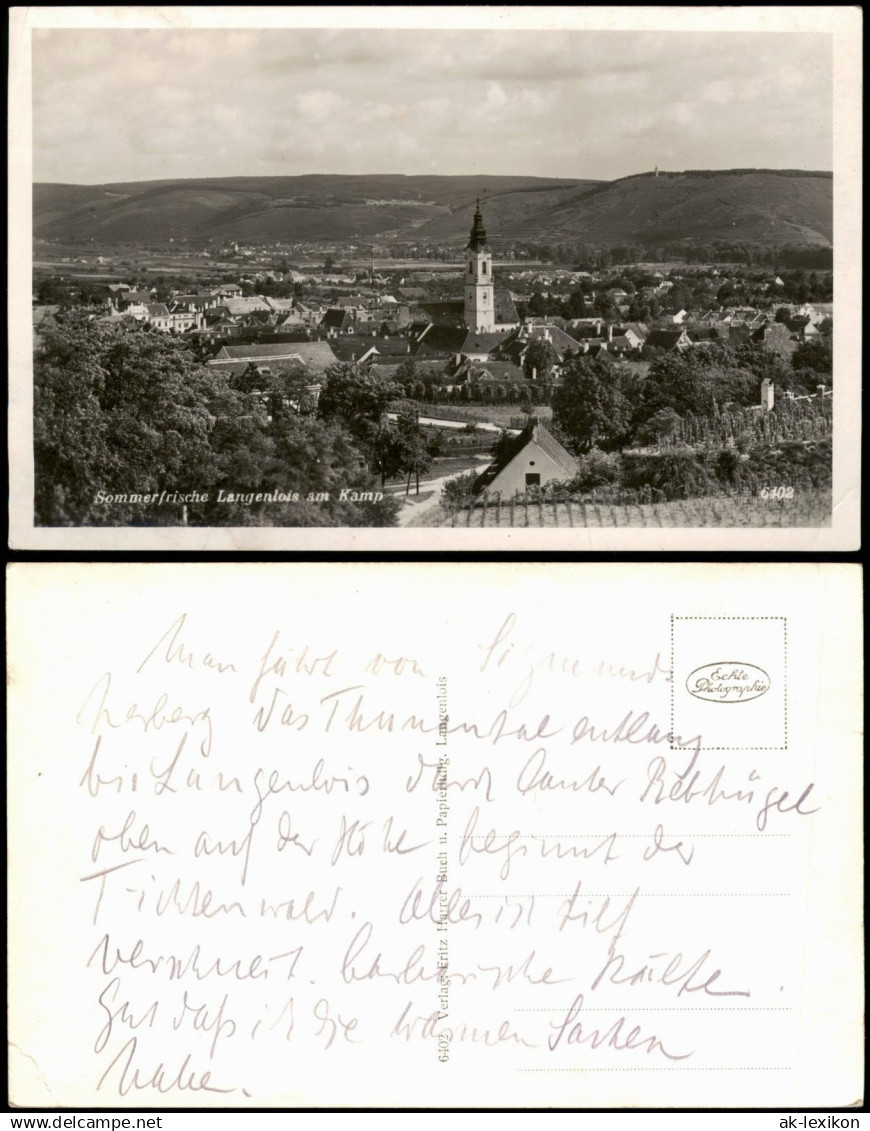 Sommerfrische Langenlois am Kamp
6402
Echte
Photographie
Man fährt von Sigmunds
herberg das Thumental entlang
bis Langenlois durch lauter Rebhügel
oben auf der Höhe beginnt der
Fichtenwald. Alles ist tief
verschneit. barbarische Kälte.
Gut daß ich die warmen Sachen
habe.
6402 Verlag: Fritz Harrer Buch u. Papierhdlg. Langenlois
akpool.de
ak-lexikon